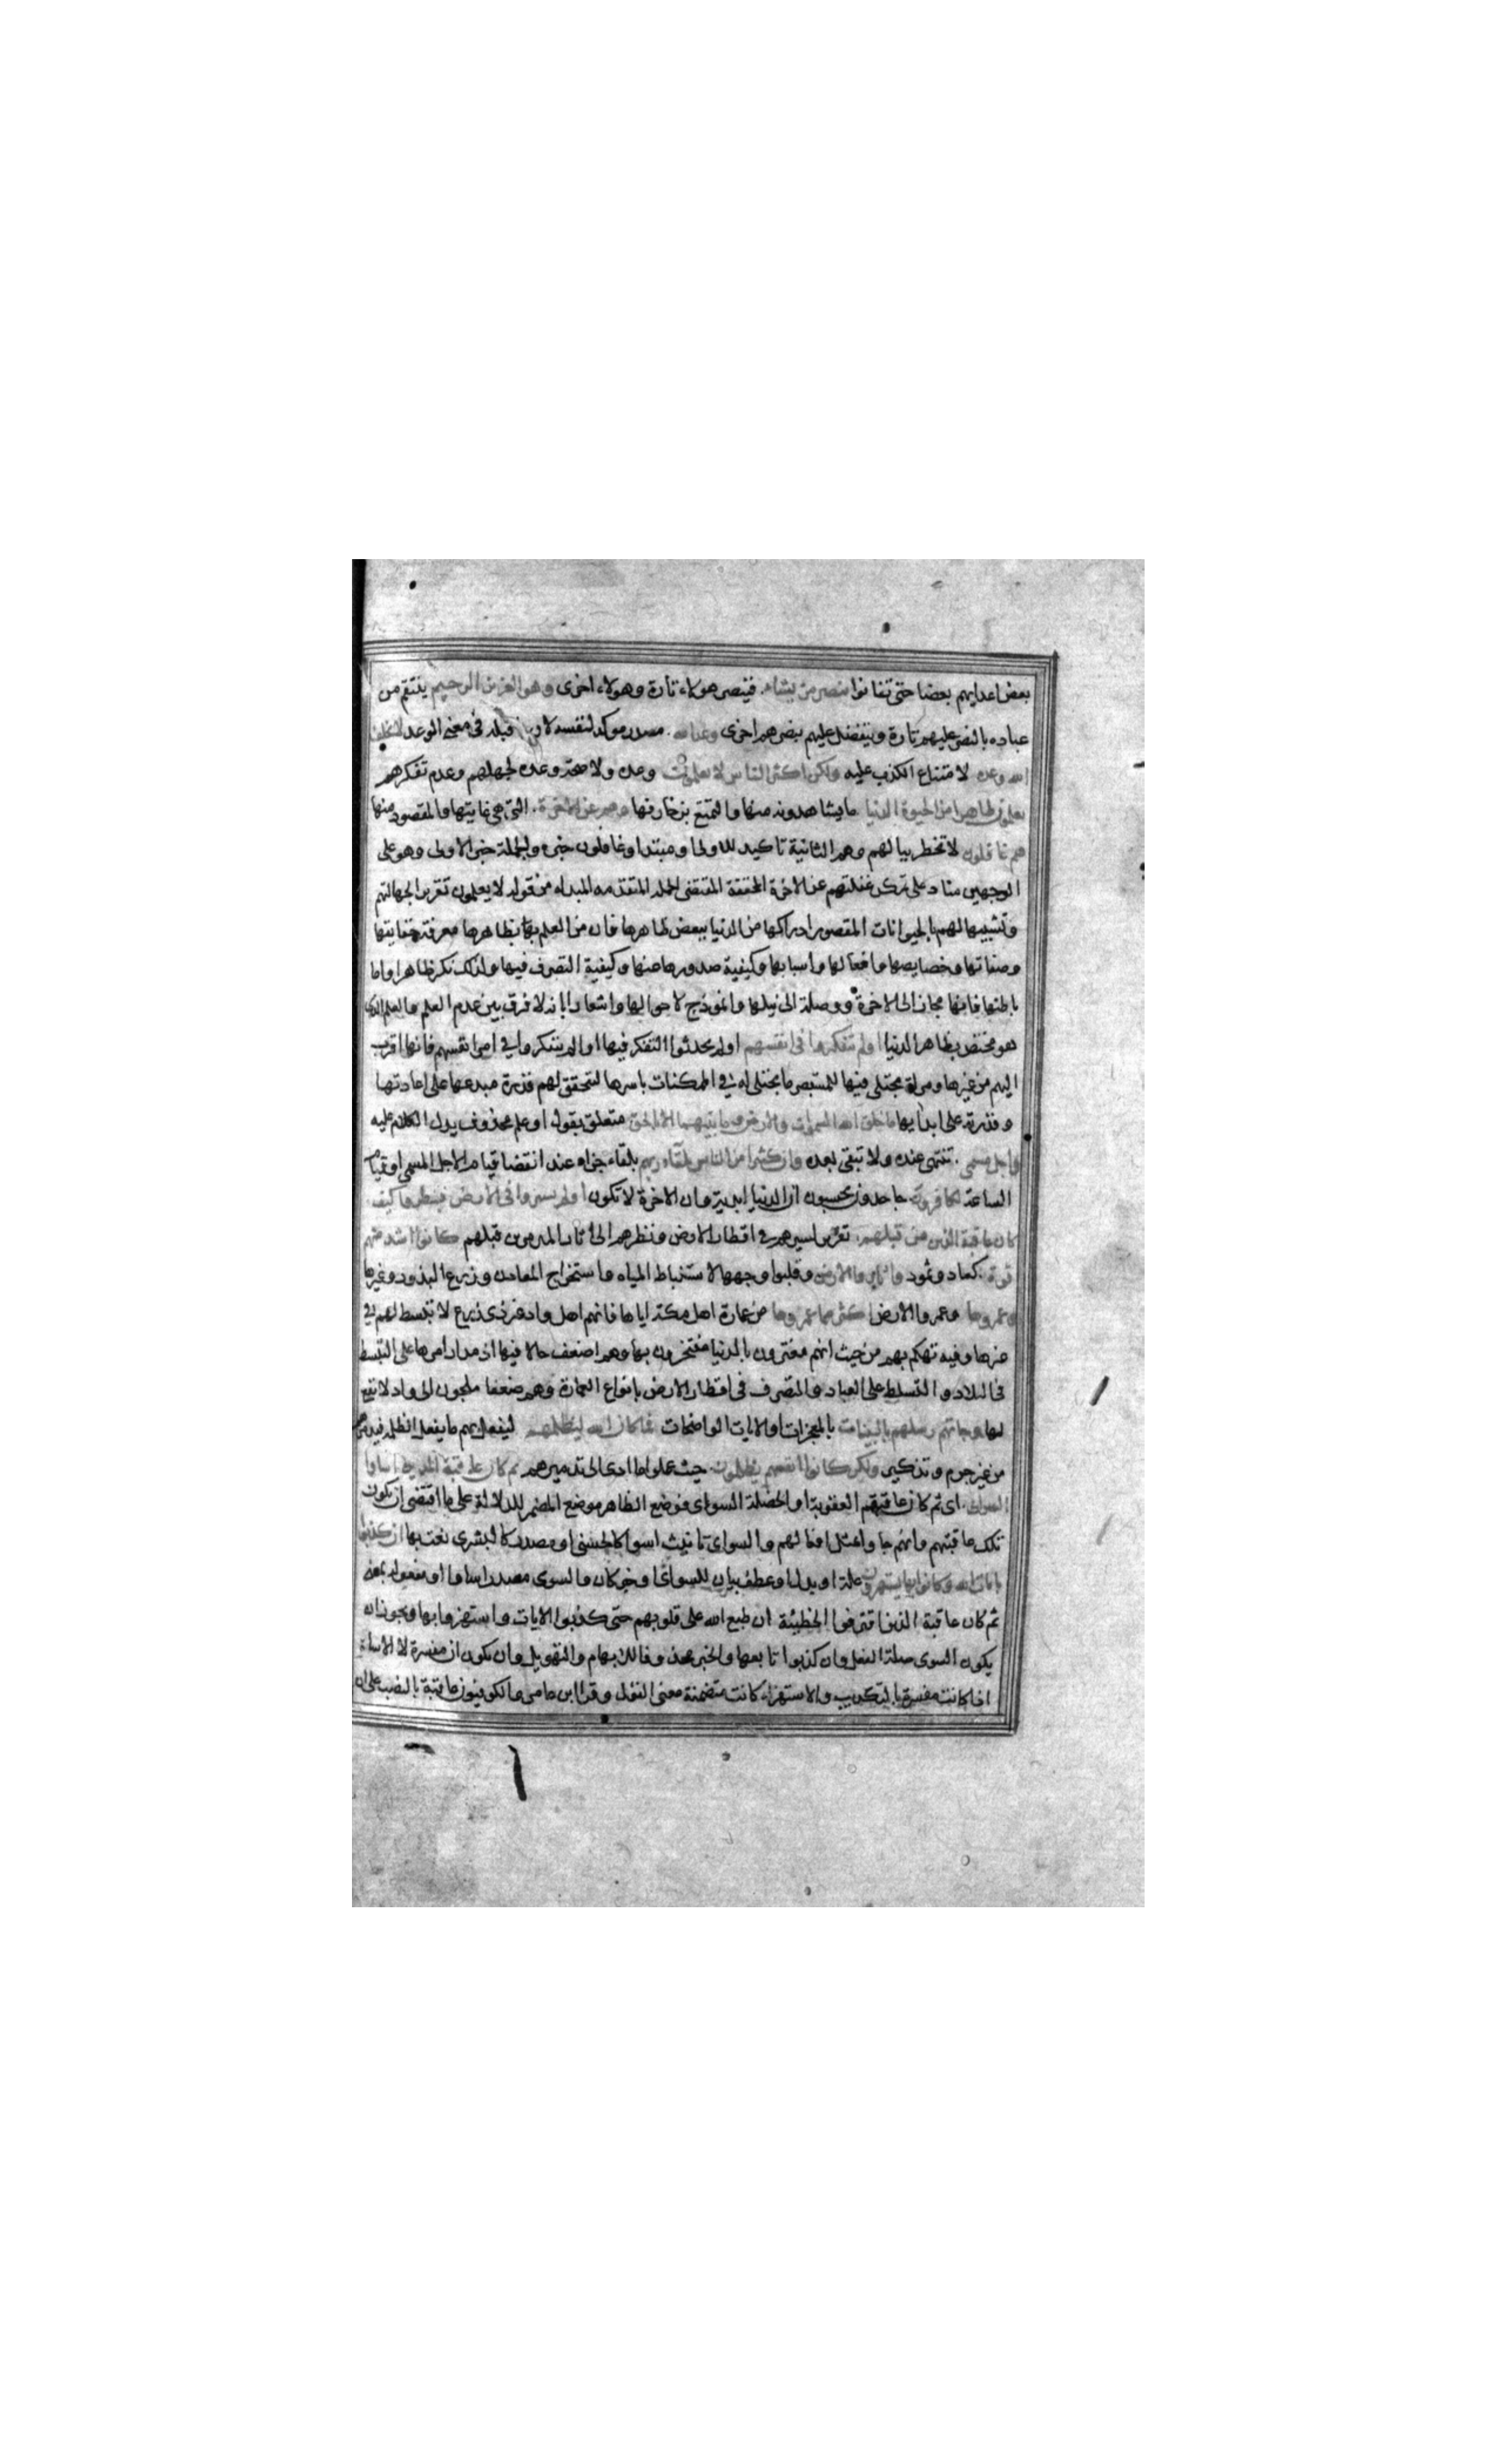 بعض اعدايهم بعضا حتى تفانوا ينصر من يشاء فينصر هولاء تارة وهولاء اخرى وهو العزيز الرحيم ينتقم من
عباده بالنصر عليهم تارة ويتفضل عليهم بنصرهم اخرى وعد الله مصدر موكد لنفسه لان قبله في معنى الوعد لا يخلف
الله وعده لامتناع الكذب عليه ولكن اكثر الناس لا يعلمون وعده ولا صحة وعده لجهلهم وعدم تفكرهم
يعلمون ظاهرا من الحيوة الدنيا ما يشاهدونه منها والتمتع بزخارفها وهم عن الاخرة التي هي غايتها والمقصود منها
هم غافلون لا تخطر ببالهم وهم الثانية تاكيد للاولى او مبتدا وغافلون خبره والجملة خبر الاولى وهو على
الوجهين مناد على تمكن غفلتهم عن الاخرة المحققة لمقتضى الجملة المتقدمه المبدله من قوله لا يعلمون تقرير الجهالتهم
وتشبيها لهم بالحيوانات المقصور ادراكها من الدنيا ببعض ظاهرها فان من العلم بظاهرها معرفة حقايقها
وصفاتها وخصايصها وافعالها واسبابها وكيفية صدورها منها وكيفية التصرف فيها ولذلك نكر ظاهرا واما
باطنها فانها مجاز الى الاخرة ووصلة الى نيلها وانموذج لاحوالها واشعارا بانه لا فرق بين عدم العلم والعلم الذي
هو مختص بظاهر الدنيا اولم يتفكروا في انفسهم اولم يحدثوا التفكر فيها اولم يتفكروا في امر انفسهم فانها اقرب
اليهم من غيرها ومراة يجتلي فيها للمستبصر ما يجتلى له في الممكنات باسرها لتحقق لهم قدرة مبدعها على اعادتها
وقدرته على ابدايها ما خلق الله السموات والارض وما بينهما الا بالحق متعلق بقول او علم محذوف يدل الكلام عليه
واجل مسمى تنتهى عنده ولا تبقى بعده وان كثيرا من الناس بلقاء ربهم بلقاء جزاه عند انقضا قيام الاجل المسمى او قيام
الساعة لكافرون جاحدون يحسبون ان الدنيا ابدية وان الاخرة لا تكون اولم يسيروا في الارض فينظروا كيف
كان عاقبة الذين من قبلهم تقرير لسيرهم في اقطار الارض ونظرهم الى اثار المدمرين قبلهم كانوا اشد منهم
قوة كعاد وثمود واثاروا الارض وقلبوا وجهها لاستنباط المياه واستخراج المعادن وزرع البذور وغيرها
وعمروها وعمروا الارض اكثر مما عمروها من عمارة اهل مكة اياها فانهم اهل واد غير ذى زرع لا تبسط لهم في
غيرها وفيه تهكم بهم من حيث انهم مغترون بالدنيا مفتخرون بها وهم اضعف حالا فيها اذ مدار امرها على التبسط
في البلاد والتسلط على العباد والتصرف في اقطار الارض بانواع العمارة وهم ضعفا ملجون الى واد لا نفع
لها وجاتهم رسلهم بالبينات بالمعجزات او الايات الواضحات فما كان الله ليظلمهم ليفعل بهم ما يفعل الظلمة فيدمرهم
من غير جرم وتذكير ولكن كانوا انفسهم يظلمون حيث عملوا ما ادى الى تدميرهم ثم كان عاقبة الذين اساوا
السواى اى ثم كان عاقبتهم العقوبة او الخصلة السواى فوضع الظاهر موضع المضمر للدلالة على ما اقتضى ان يكون
تلك عاقبتهم وانهم جاوا بمثل افعالهم والسواى تانيث اسوا كالحسنى او مصدر كالبشرى نعت بها ان كذبوا
بايات الله وكانوا بها يستهزون علة او بدل او عطف بيان للسواى او خبر كان والسوى مصدر اساوا او مفعوله بمعنى
ثم كان عاقبة الذين اقترفوا الخطيئة ان طبع الله على قلوبهم حتى كذبوا الايات واستهزوا بها ويجوز ان
يكون السوى صلة الفعل وان كذبوا تابعها والخبر محذوفا للابهام والتهويل وان يكون ان مفسرة لا الاساة
اذا كانت مفسرة بالتكذيب والاستهزاء كانت متضمنة معنى القول وقرا ابن عامر والكوفيون عاقبة بالنصب على ان